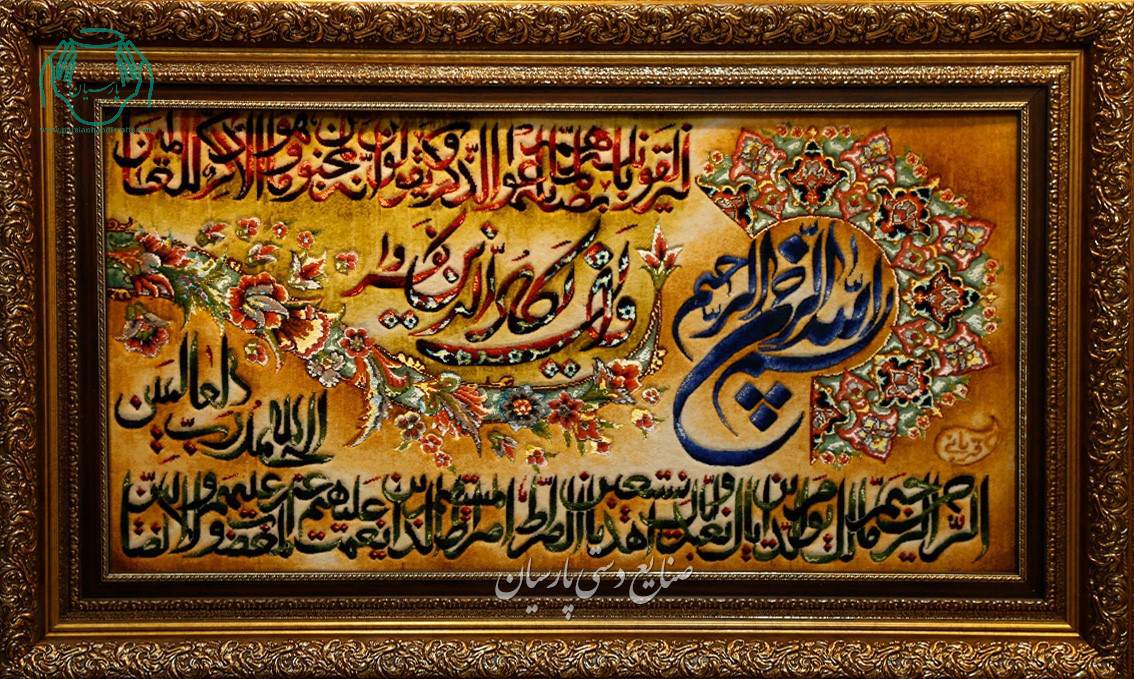 بسم الله الرحمن الرحیم
وان یکاد الذین کفروا
لیزلقونک بابصارهم لما سمعوا الذکر ویقولون انه لمجنون وما هو الا ذکر للعالمین
الحمد لله رب العالمین
الرحمن الرحیم مالک یوم الدین ایاک نعبد وایاک نستعین اهدنا الصراط المستقیم صراط الذین انعمت علیهم غیر المغضوب علیهم ولا الضالین
صنایع دستی پارسیان
پارسیان